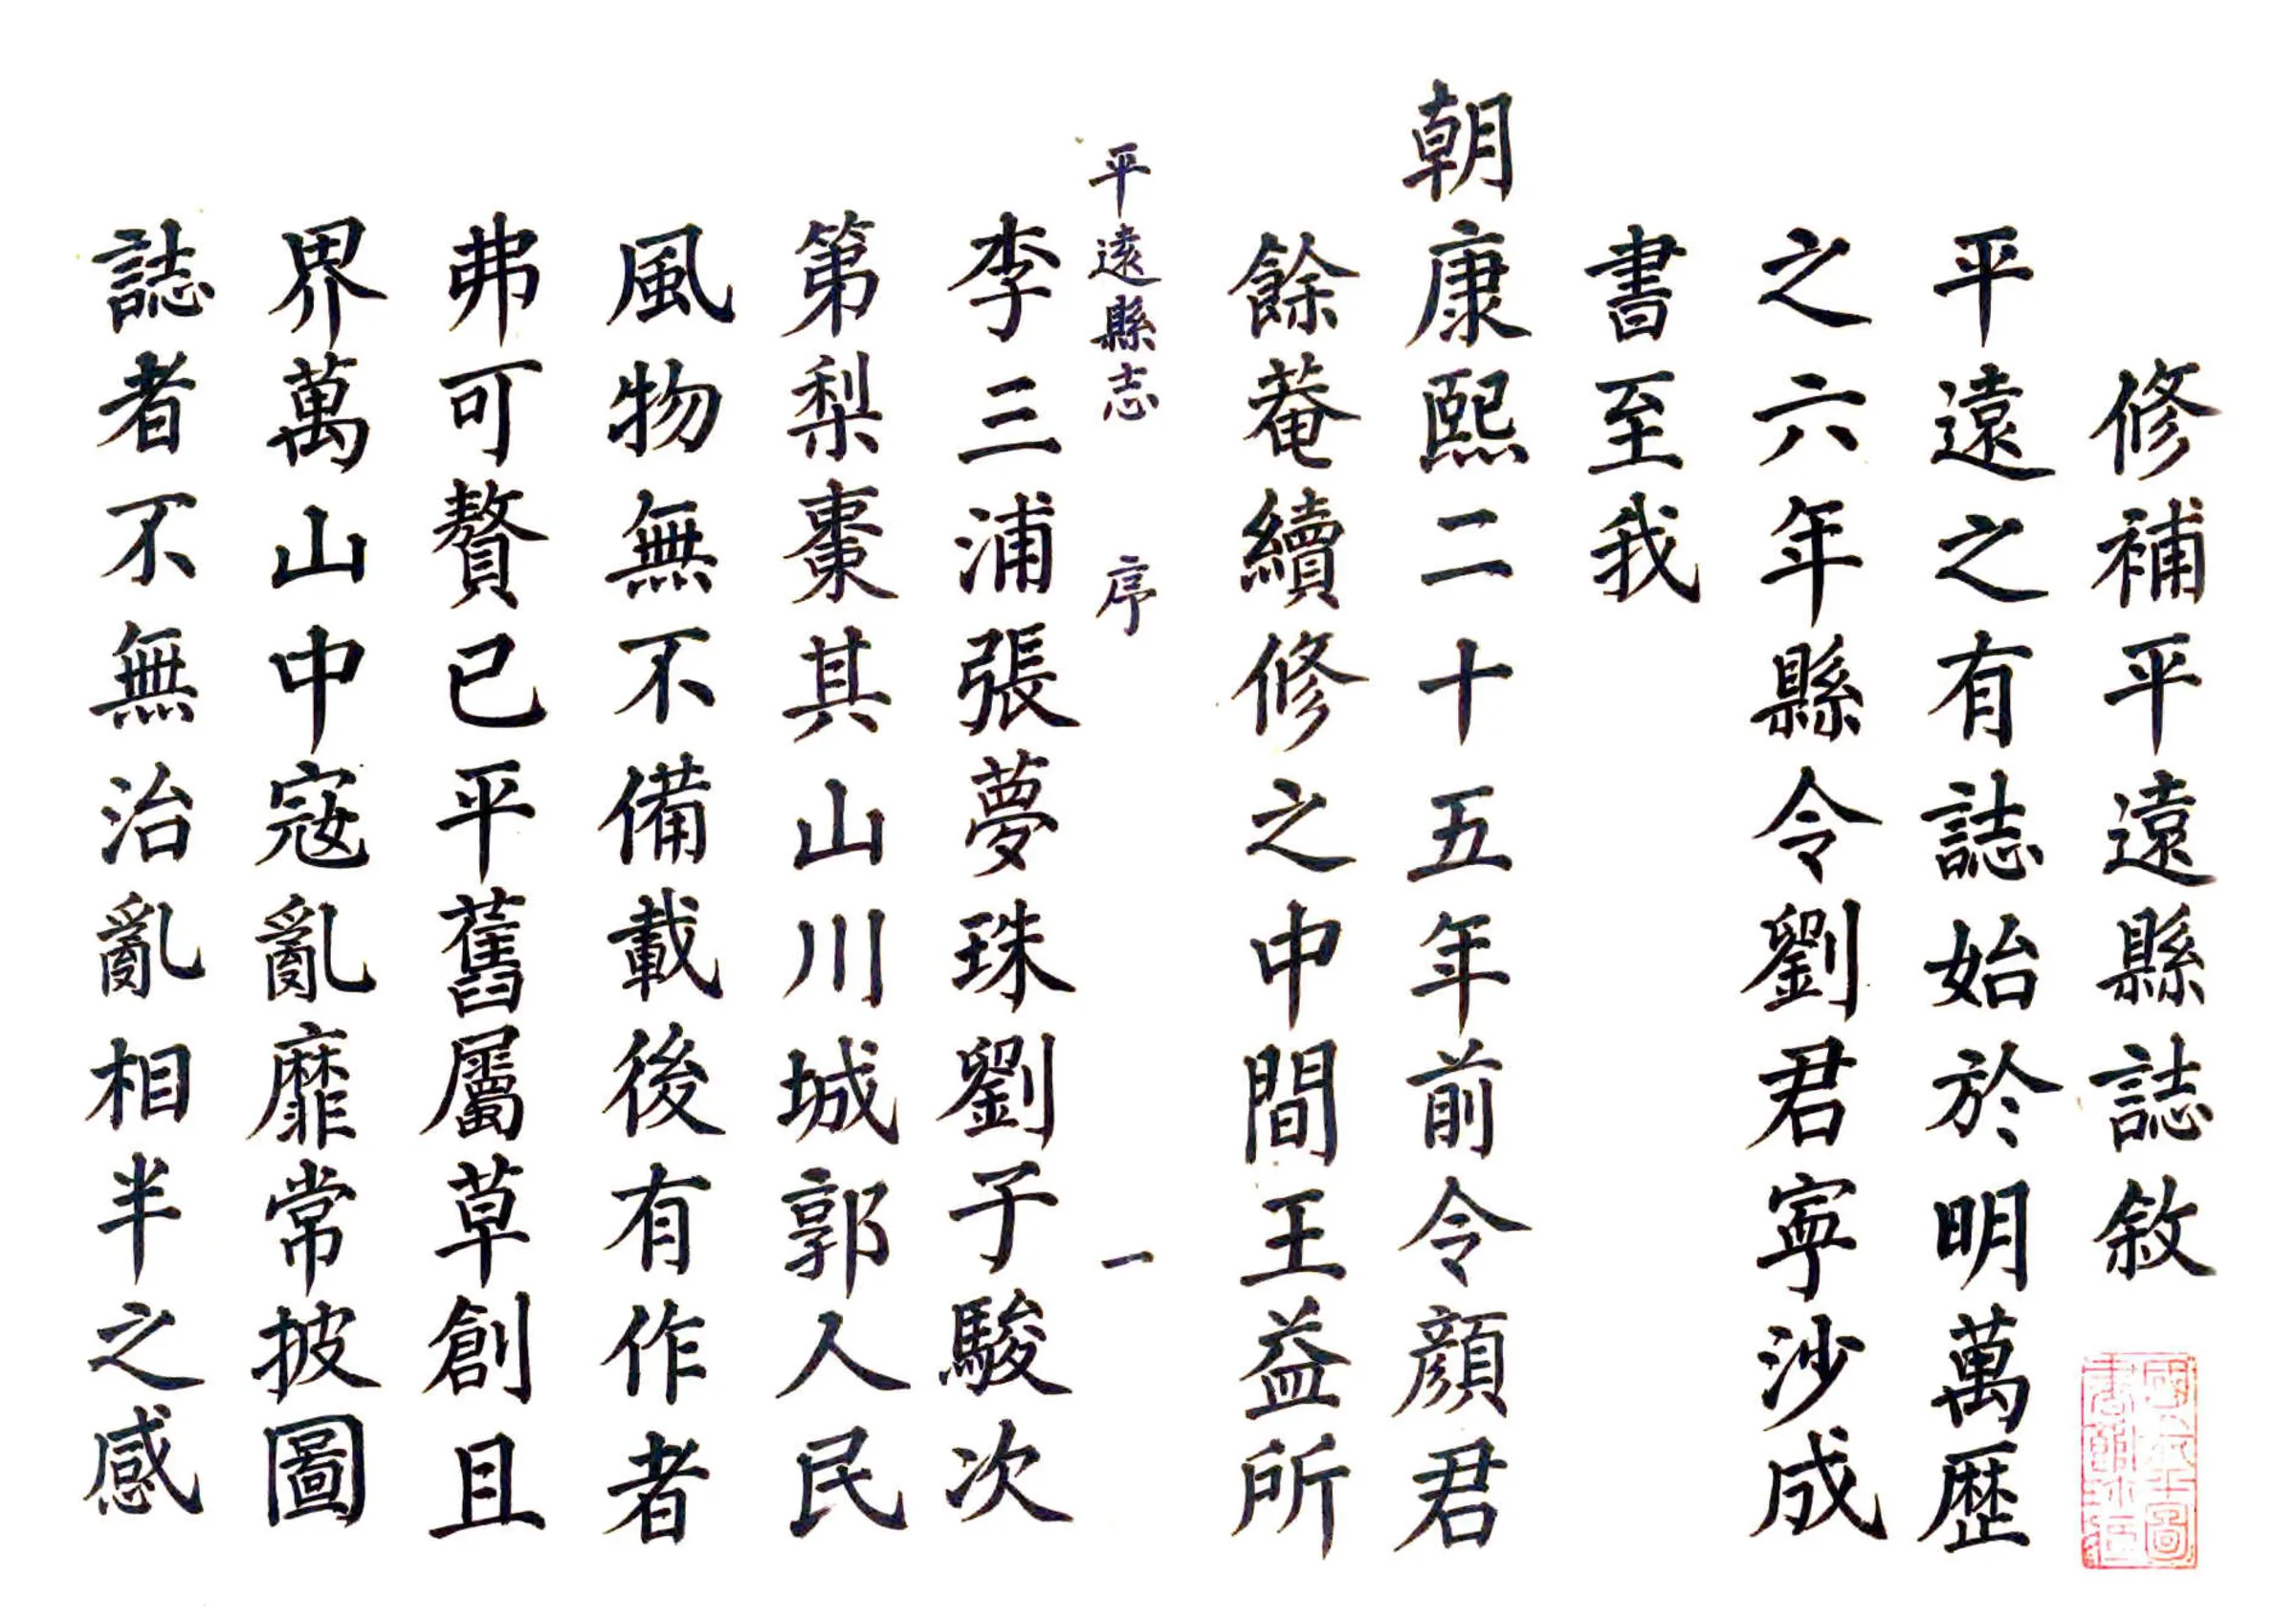 修補平遠縣誌敘
平遠之有誌始於明萬歷
之六年縣令劉君寧沙成
書至我
朝康熙二十五年前令顔君
餘菴續修之中間王益所
平遠縣志 序 一
李三浦張夢珠劉子駿次
第梨棗其山川城郭人民
風物無不備載後有作者
弗可贅已平舊屬草創且
界萬山中寇亂靡常披圖
誌者不無治亂相半之感